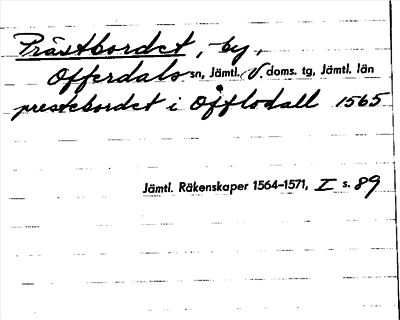 Prästbordet, by,
Offerdals sn, Jämtl. V. doms. tg, Jämtl. län
prestebordet i Offlodall 1565
Jämtl. Räkenskaper 1564–1571, I s. 89